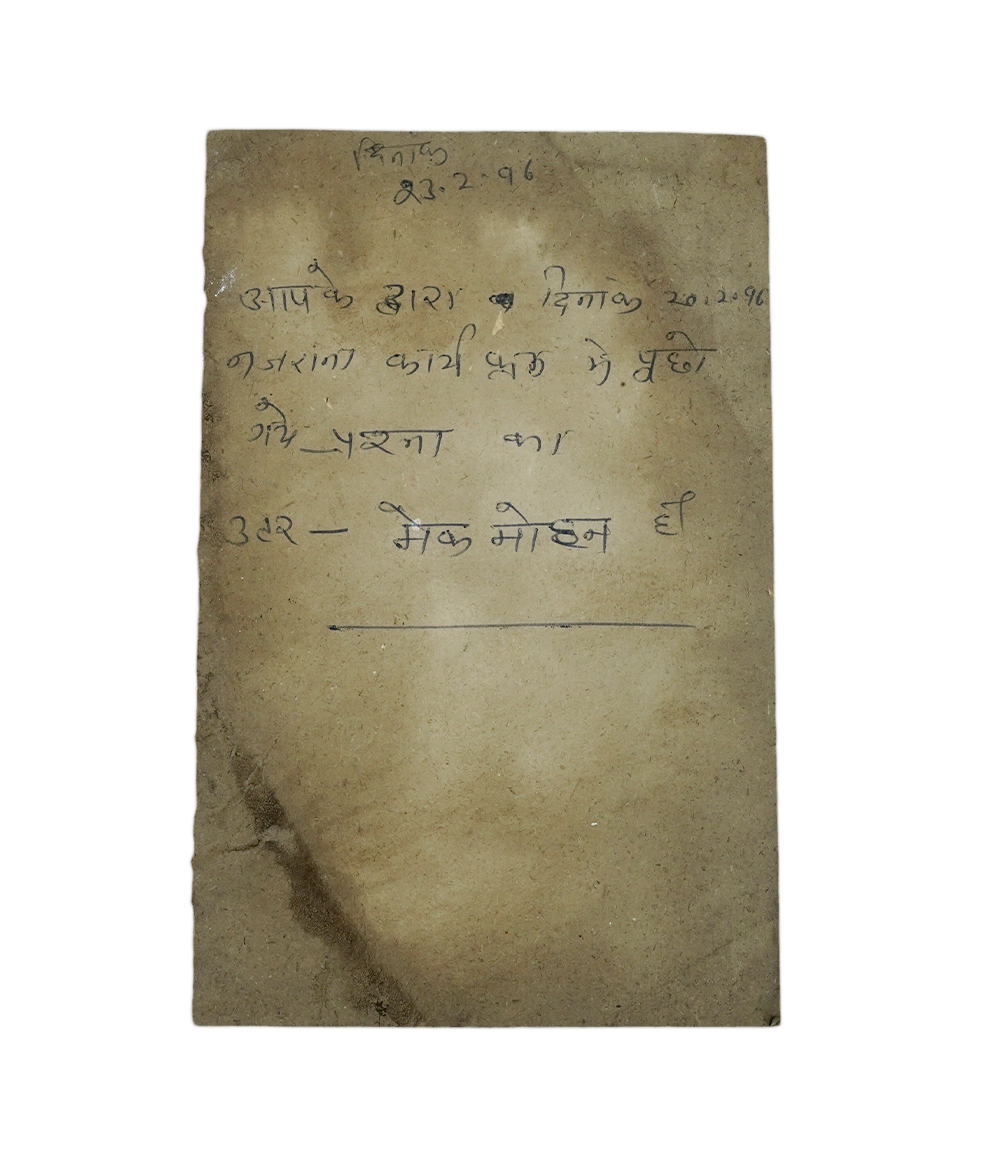 दिनांक
23.2.96
आपके द्वारा दिनांक 20.2.96
नजराना कार्य क्रम में पूछो
गये प्रश्ना का
उटर — मैक मोहन हैं